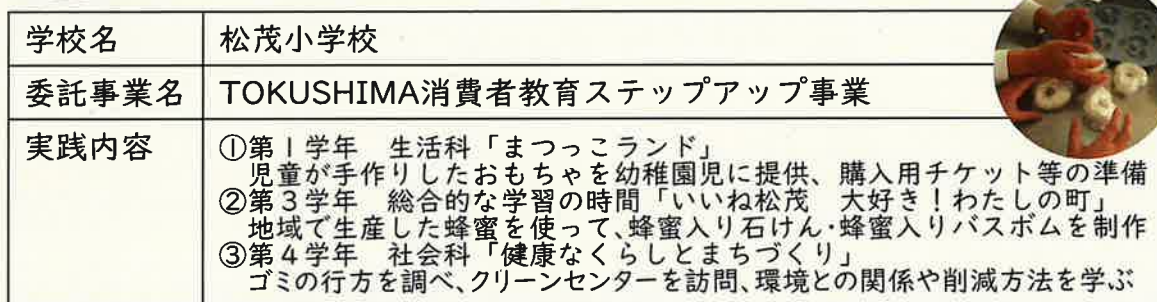 学校名 松茂小学校
委託事業名 TOKUSHIMA消費者教育ステップアップ事業
実践内容 ①第1学年 生活科「まつっこランド」
児童が手作りしたおもちゃを幼稚園児に提供、購入用チケット等の準備
②第3学年 総合的な学習の時間「いいね松茂 大好き!わたしの町」
地域で生産した蜂蜜を使って、蜂蜜入り石けん・蜂蜜入りバスボムを制作
③第4学年 社会科「健康なくらしとまちづくり」
ゴミの行方を調べ、クリーンセンターを訪問、環境との関係や削減方法を学ぶ